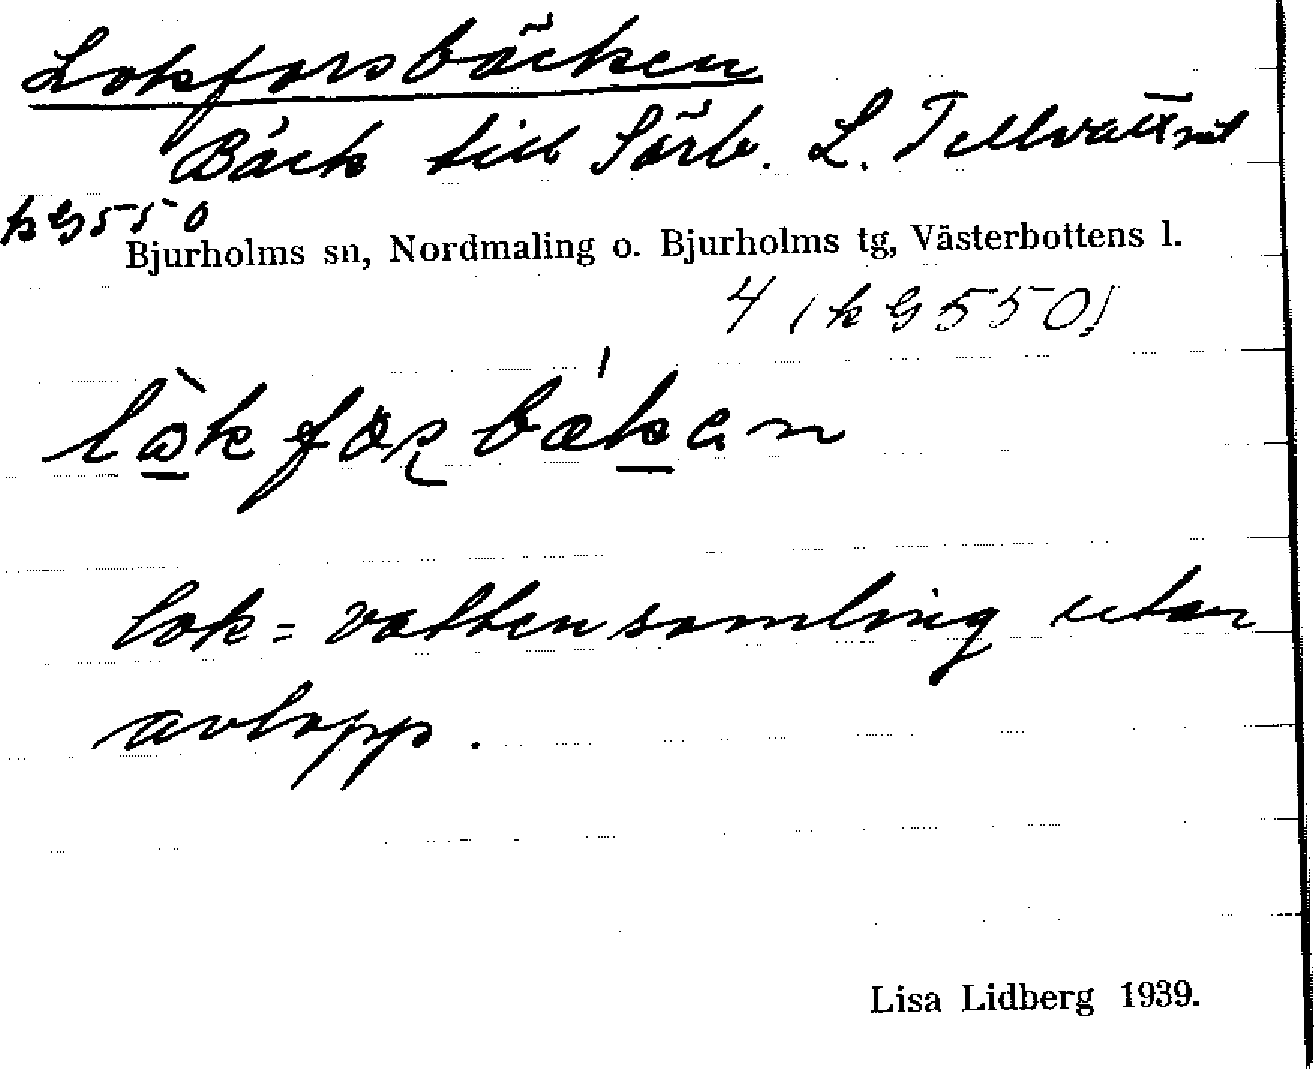 Lokforsbäcken
Bäck till Sörb. L. Tellvattnet
kG550
Bjurholms sn, Nordmaling o. Bjurholms tg, Västerbottens l.
4 (kG550)
lok = vattensamling utan
avlopp.
Lisa Lidberg 1939.